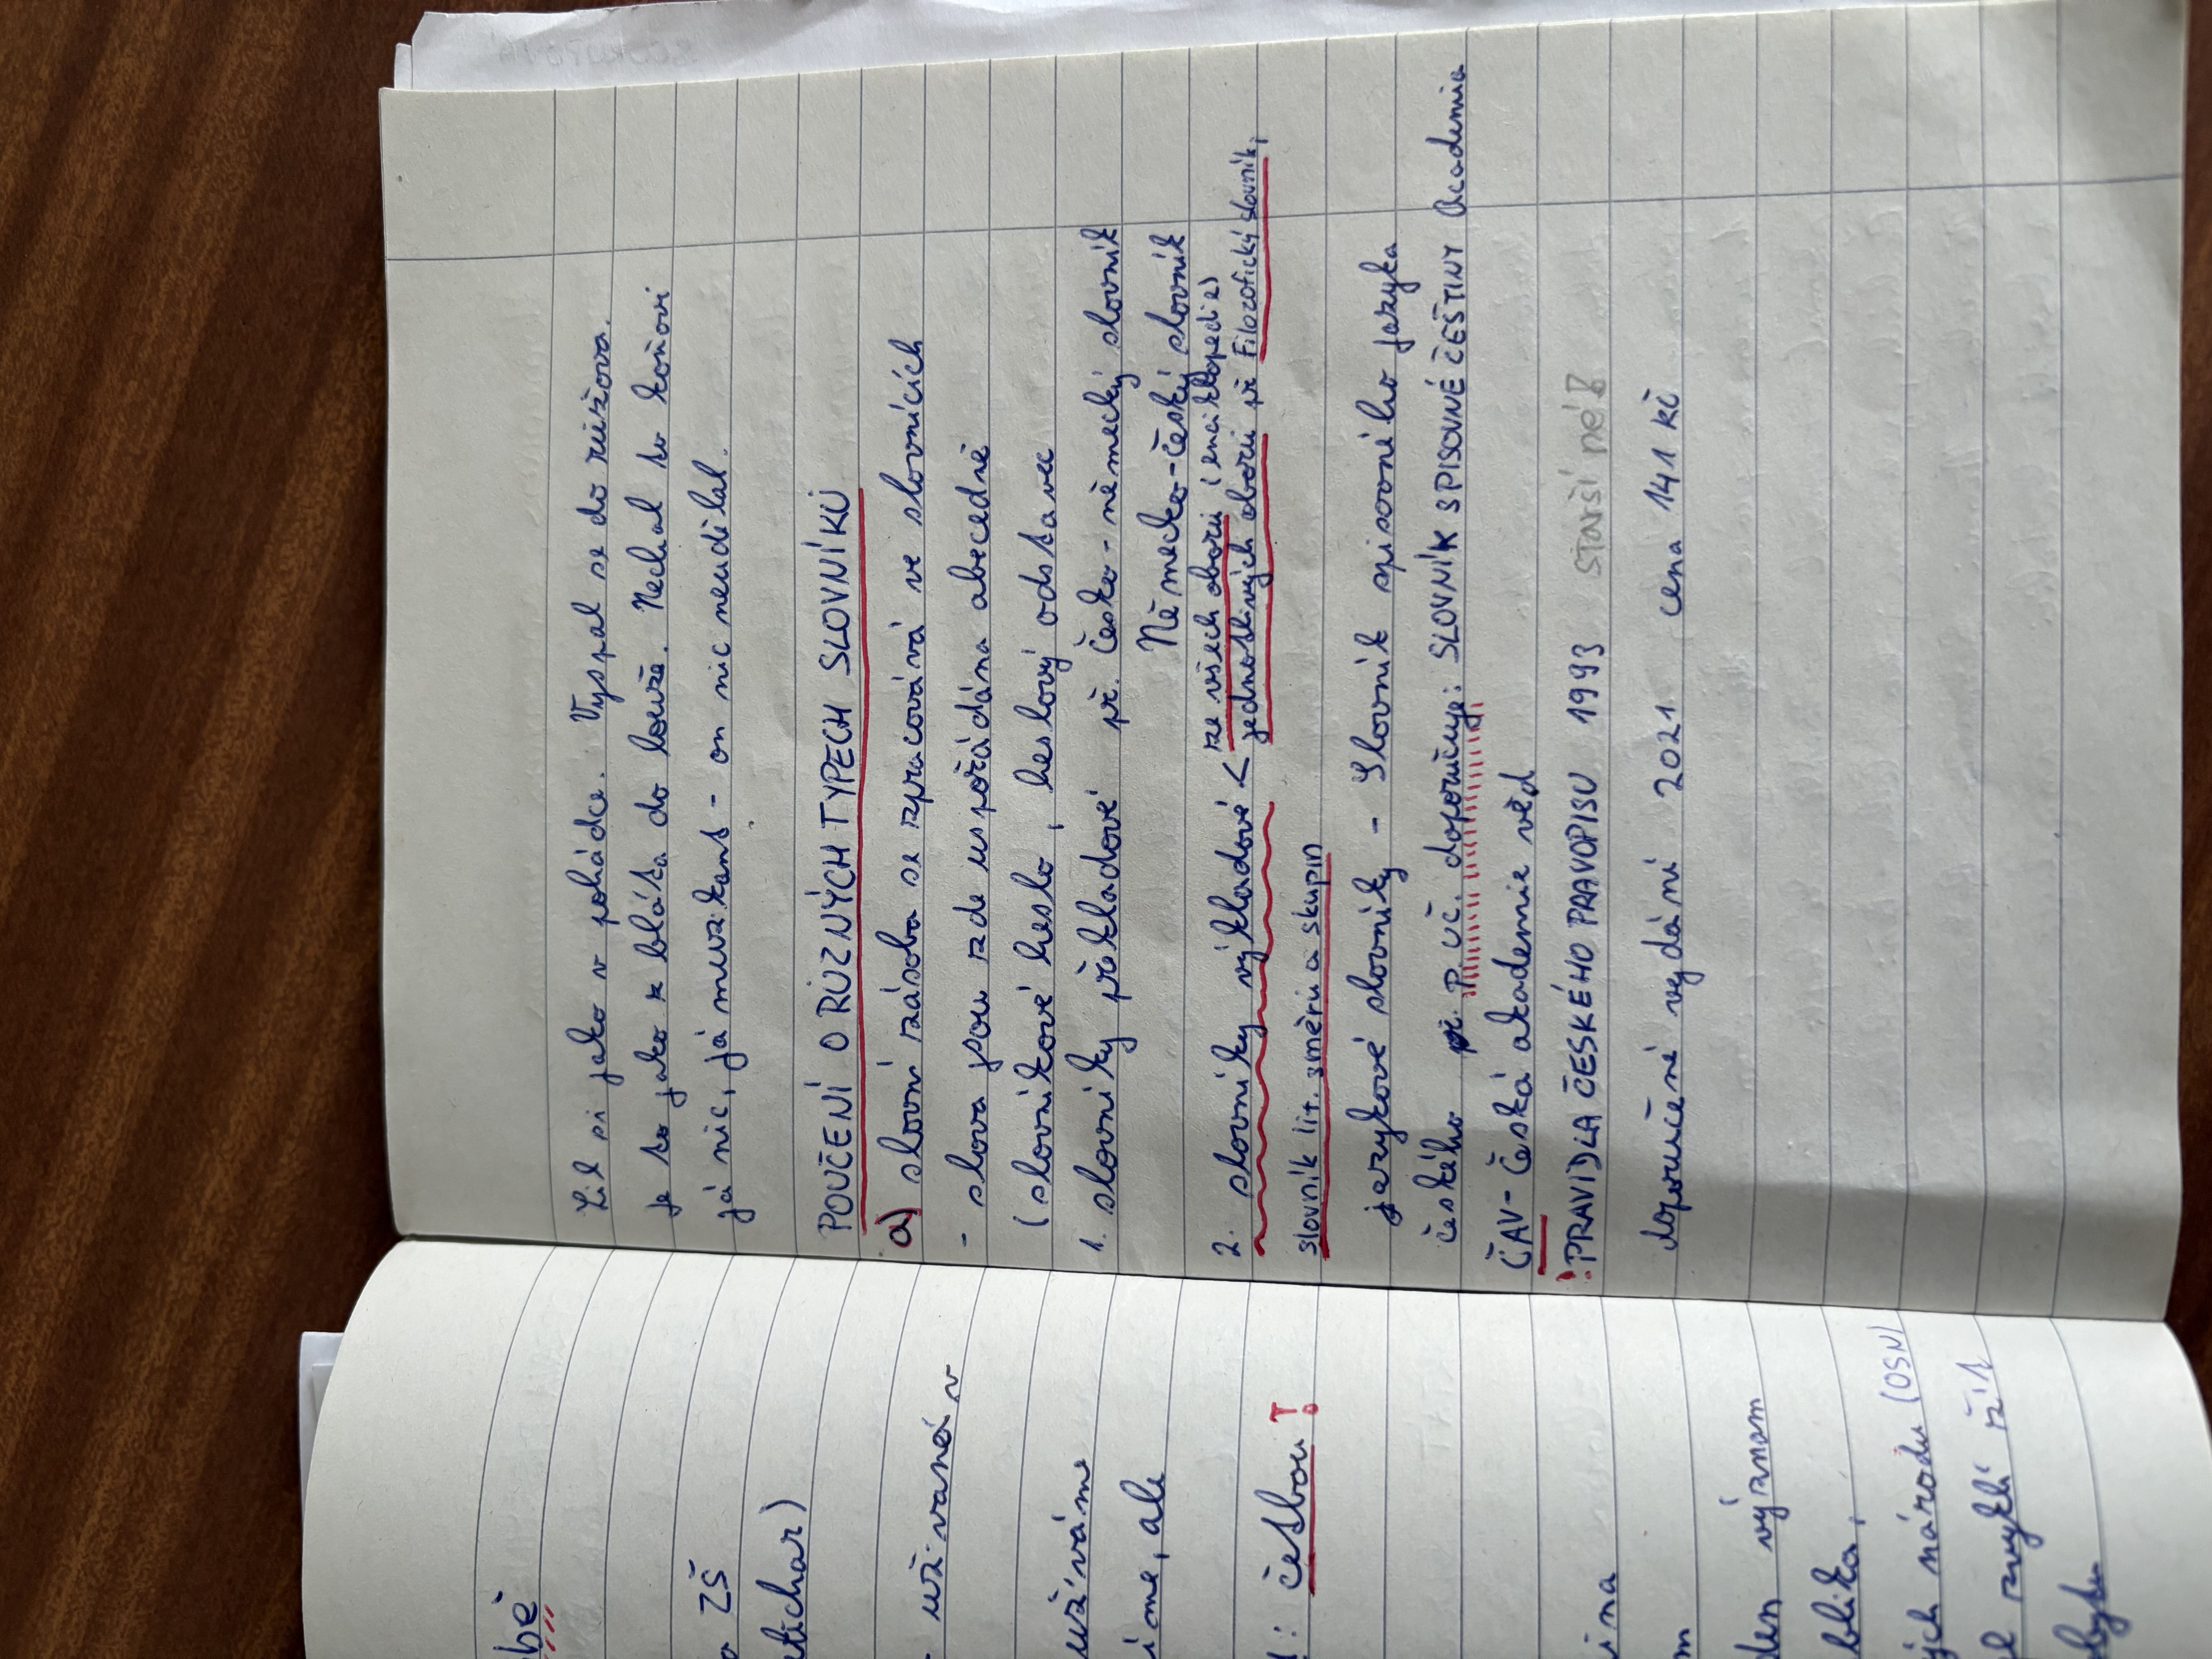 Žil si jako v pohádce. Vyspal se do růžova.
je to jako k blátu do louže. Nechal to koňovi
já nic, já muzikant - on nic neudělal.
POUČENÍ O RŮZNÝCH TYPECH SLOVNÍKŮ
a) slovní zásoba se zpracovává ve slovnících
- slova jsou zde uspořádána abecedně
(slovníkové heslo, heslový odstavec
1. slovníky překladové př. Česko-německý slovník
Německo-český slovník
2. slovníky výkladové < ze všech oborů (enciklopedie)
jednotlivých oborů př Filozofický slovník,
slovník lit. směrů a skupin
jazykové slovníky - Slovník spisovného jazyka
českého př. P. uč. doporučuje: SLOVNÍK SPISOVNÉ ČEŠTINY Academia
ČAV - Česká akademie věd
! PRAVIDLA ČESKÉHO PRAVOPISU 1993 starší ne!
doporučené vydání 2021 cena 141 kč
bě
ZŠ
etichar)
- užívané v
užíváme
íme, ale
! : čsbou !
ina
m
den význam
blika,
ých národů (OSN)
zvyklí říkt